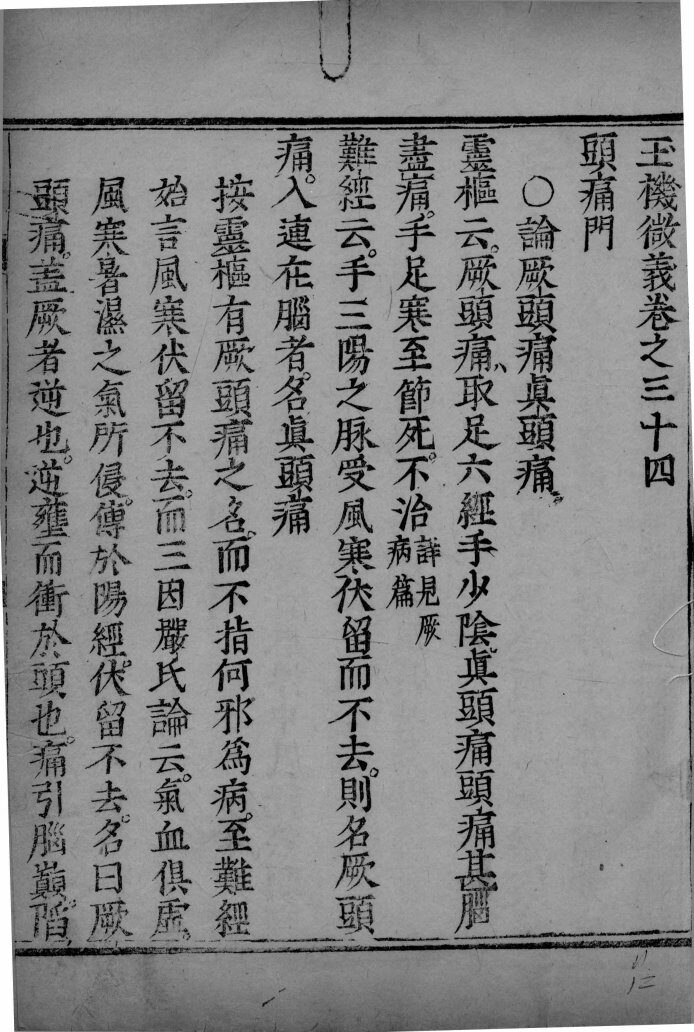 玉機微義卷之三十四
頭痛門
○論厥頭痛眞頭痛
靈樞云。厥頭痛、取足六經手少陰。眞頭痛頭痛甚。腦
盡痛。手足寒至節死。不治詳見厥病篇
難經云。手三陽之脉受風寒。伏留而不去。則名厥頭
痛。入連在腦者。名眞頭痛
按靈樞有厥頭痛之名。而不指何邪爲病。至難經
始言風寒伏留不去。而三因嚴氏論云。氣血俱虛。
風寒暑濕之氣所侵。傳於陽經。伏留不去。名曰厥
頭痛。蓋厥者逆也。逆壅而衝於頭也。痛引腦巔。陷